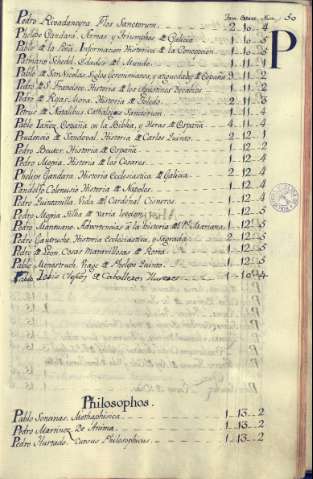 P
Pedro Rivadeneyra, Flos Sanctorum. 2..10..4
Phelipe Gandara Armas y Triumphos de Galicia 1..10..5
Pablo de la Peña, Informacion Historica de la Concepcion 1..10..5
Hartmano Schedel, Edades del Mundo 1..11..
Pablo de San Nicolas, Siglos Geronimianos, y antiguedades de España 9..11..2
Pedro de S. Francisco, Historia de los Agustinos Recoletos 1..11..2
Pedro de Roxas Mora, Historia de Toledo 2..11..3
Petrus de Natalibus, Cathalogus Sanctorum 1..11..4
Pablo Yañez, España en la Biblia, y Heras de España 4..11..4
Prudencio de Sandoval, Historia de Carlos Quinto 2..12..1
Pedro Beuter, Historia de España 1..12..2
Pedro Mexia, Historia de los Cesares 1..12..4
Phelipe Gandara Historia Ecclesiastica de Galicia 2..12..4
Pandolfo Colenucio Historia de Napoles 1..12..4
Pedro Quintanilla, Vida del Cardenal Cisneros 1..12..4
Pedro Mexia, Silva de varia leccion 1..12..5
Pedro Mantuano Advertencias à la historia del Pe. Mariana 1..12..5
Pedro Gautruche, Historia Ecclesiastica, y Sagrada 2..12..5
Pedro de Leon Cosas maravillosas de Roma 1..12..5
Pablo Monestruch, Viage de Phelipe Quinto 1..12..5
Pablo de Cavalleros 1..10..4
Philosophos.
Pablo Soncinas, Methaphisica 1..13..2
Pedro Martinez De Anima 1..13..2
Pedro Hurtado, Cursus Philosophicus 1..13..2